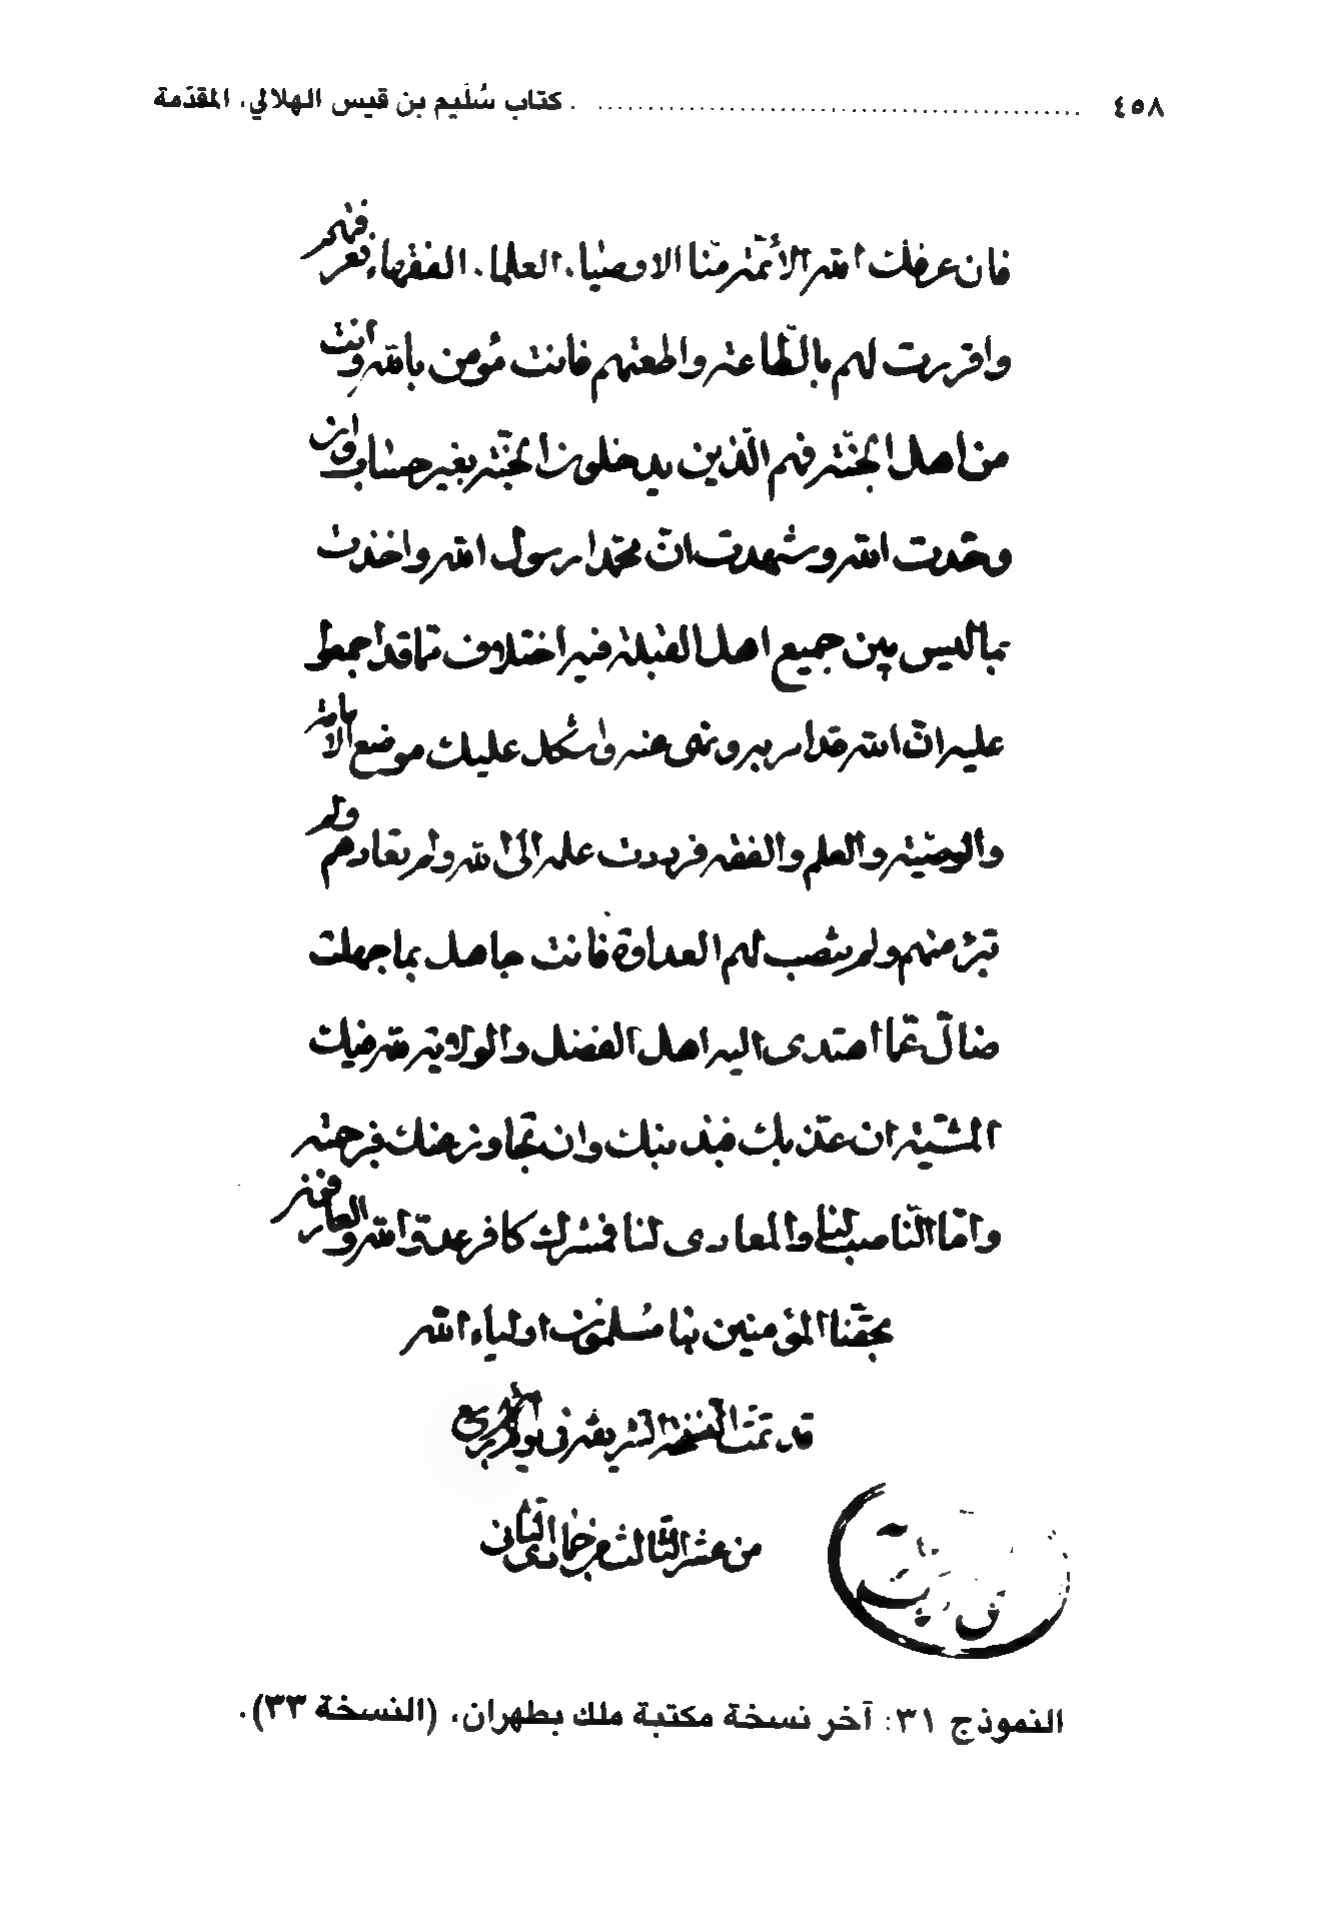 ٤٥٨ ........ كتاب سُلَيم بن قيس الهلالي، المقدّمة
فان عرفك الله الأئمّة منّا الاوصياء العلماء الفقهاء فعرفتهم
واقررت لهم بالطّاعة واطعتهم فانت مؤمن بالله وأنت
من اهل الجنّة فهم الّذين يدخلون الجنّة بغير حساب وان
وحّدت الله وشهدت انّ محمّدا رسول الله واخذت
بما ليس بين جميع اهل القبلة فيه اختلاف ممّا قد اجمعوا
عليه انّ الله قد امر به ونهى عنه واشكل عليك موضع الامامة
والوصيّة والعلم والفقه فرددت علمه الى الله ولم تعادهم ولم
تبرء منهم ولم تنصب لهم العداوة فانت جاهل بما جهلت
ضالّ عمّا اهتدى اليه اهل الفضل والولاية لله فيك
المشيّة ان عذّبك فبذنبك وان تجاوز عنك فبرحمته
وامّا النّاصب لنا والمعادى لنا فمشرك كافر عدوّ الله والعارفون
بحقّنا المؤمنين بنا مسلمون اولياء الله
قد تمّت النسخة الشريفة فى يوم
من عشر الثالث من جمادى الثّانى
النموذج ٣١: آخر نسخة مكتبة ملك بطهران، (النسخة ٣٣).